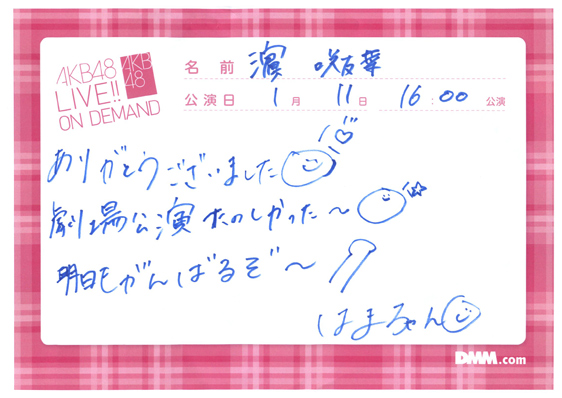 AKB48
LIVE!!
ON DEMAND
AKB
48
名前 濵 咲友菜
公演日 1月 11日 16:00 公演
ありがとうございました
劇場公演 たのしかった〜
明日もがんばるぞ〜
はまちゃん
DMM.com